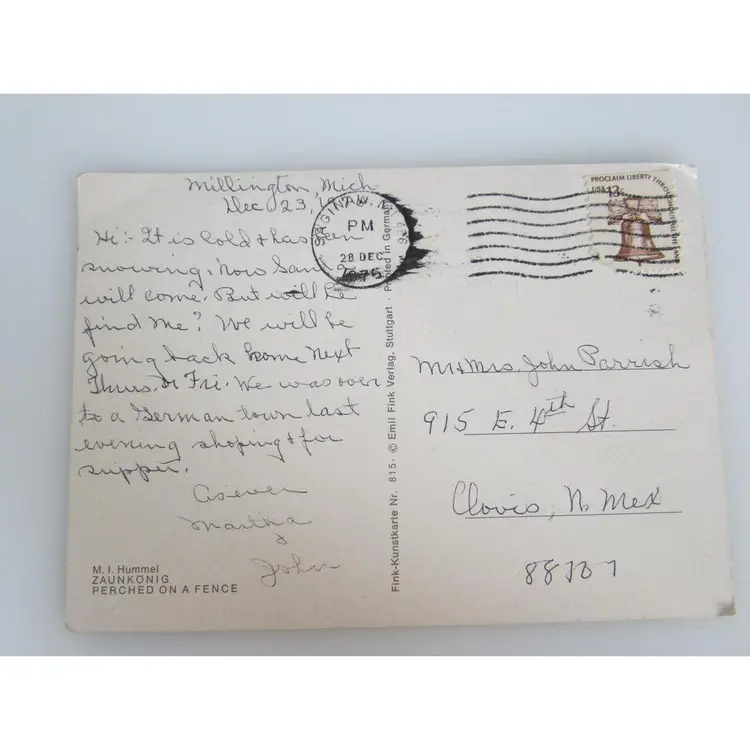 Millington, Mich
Dec 23, 19
Hi:- It is Cold & has been
snowing. Now San
will come. But will he
find Me? We will be
going back home Next
Thurs. or Fri. We was over
to a German town last
evening shoping & for
supper.
As ever
Martha
&
John
M. I. Hummel
ZAUNKÖNIG
PERCHED ON A FENCE
Fink-Kunstkarte Nr. 815 · © Emil Fink Verlag, Stuttgart · Printed in Germany
SAGINAW,
PM
28 DEC
PROCLAIM LIBERTY THROUGHOUT ALL THE LAND
USA 13c
Mr & Mrs. John Parrish
915 E. 4th St.
Clovis, N. Mex